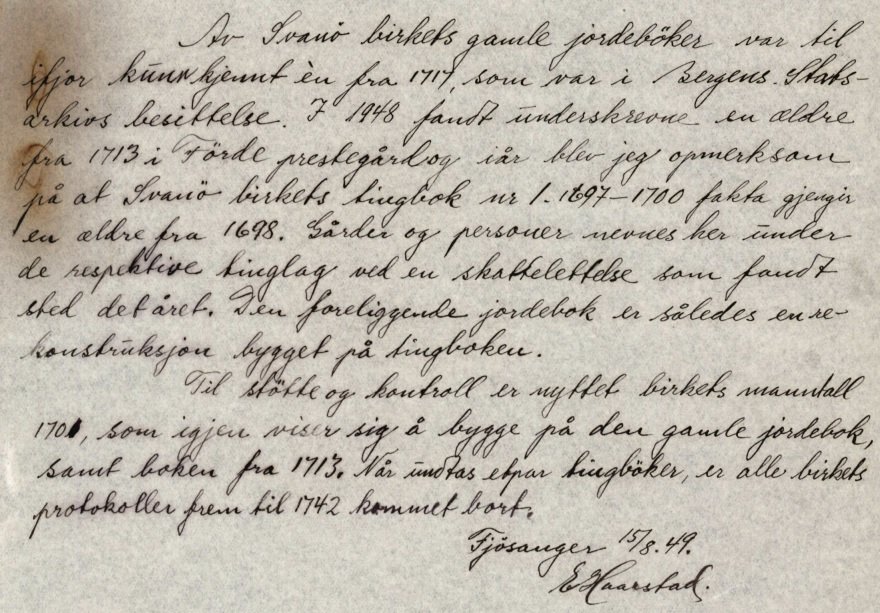 Av Svanö birkets gamle jordeböker var til
ifjor kunn kjennt èn fra 1717, som var i Bergens Stats-
arkivs besittelse. I 1948 fandt underskrevne en ældre
fra 1713 i Förde prestegård og iår blev jeg opmerksom
på at Svanö birkets tingbok nr 1. 1697-1700 fakta gjengir
en ældre fra 1698. Gårder og personer nevnes her under
de respektive tinglag ved en skattelettelse som fandt
sted det året. Den foreliggende jordebok er således en re-
konstruksjon bygget på tingboken.
Til stötte og kontroll er nyttet birkets manntall
1701, som igjen viser sig å bygge på den gamle jordebok,
samt boken fra 1713. Når undtas etpar tingböker, er alle birkets
protokoller frem til 1742 kommet bort.
Fjösanger 15/8. 49.
E Haarstad.